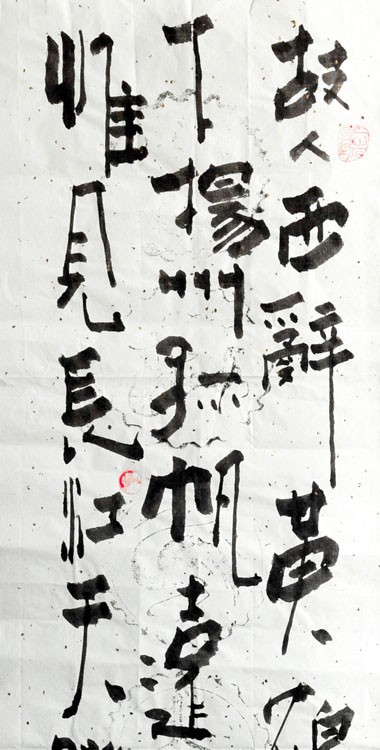 故人西辭黄
下揚州孤帆遠
惟見長江天